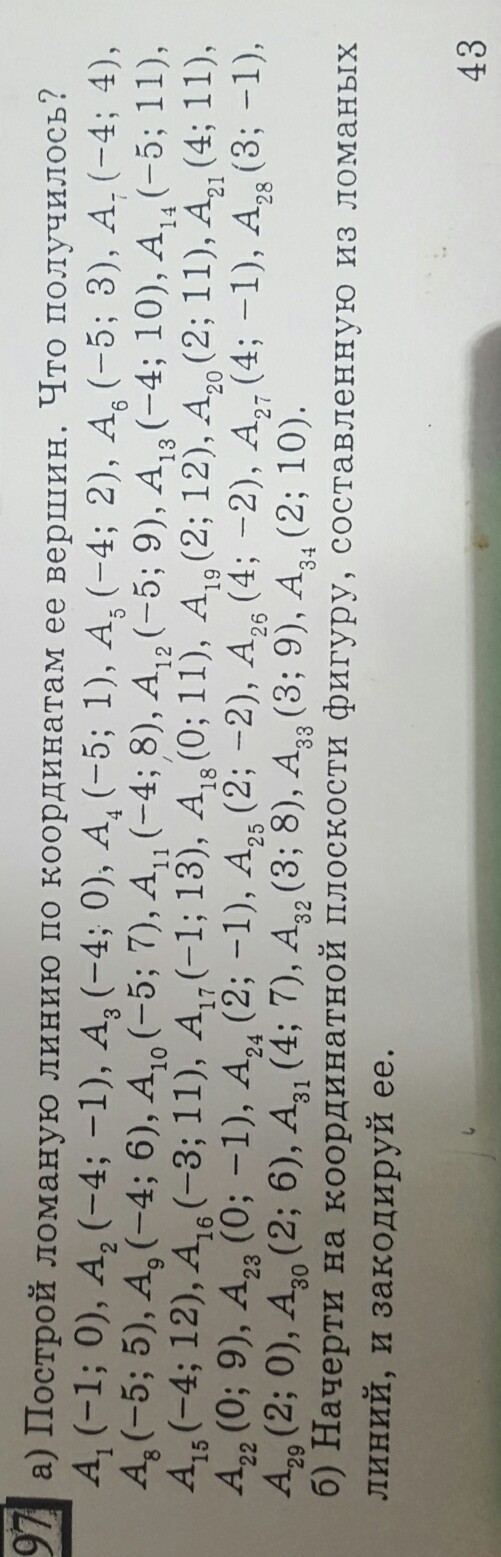 97 а) Построй ломаную линию по координатам ее вершин. Что получилось?
A₁ (−1; 0), A₂ (−4; −1), A₃ (−4; 0), A₄ (−5; 1), A₅ (−4; 2), A₆ (−5; 3), A₇ (−4; 4),
A₈ (−5; 5), A₉ (−4; 6), A₁₀ (−5; 7), A₁₁ (−4; 8), A₁₂ (−5; 9), A₁₃ (−4; 10), A₁₄ (−5; 11),
A₁₅ (−4; 12), A₁₆ (−3; 11), A₁₇ (−1; 13), A₁₈ (0; 11), A₁₉ (2; 12), A₂₀ (2; 11), A₂₁ (4; 11),
A₂₂ (0; 9), A₂₃ (0; −1), A₂₄ (2; −1), A₂₅ (2; −2), A₂₆ (4; −2), A₂₇ (4; −1), A₂₈ (3; −1),
A₂₉ (2; 0), A₃₀ (2; 6), A₃₁ (4; 7), A₃₂ (3; 8), A₃₃ (3; 9), A₃₄ (2; 10).
б) Начерти на координатной плоскости фигуру, составленную из ломаных
линий, и закодируй ее.
43